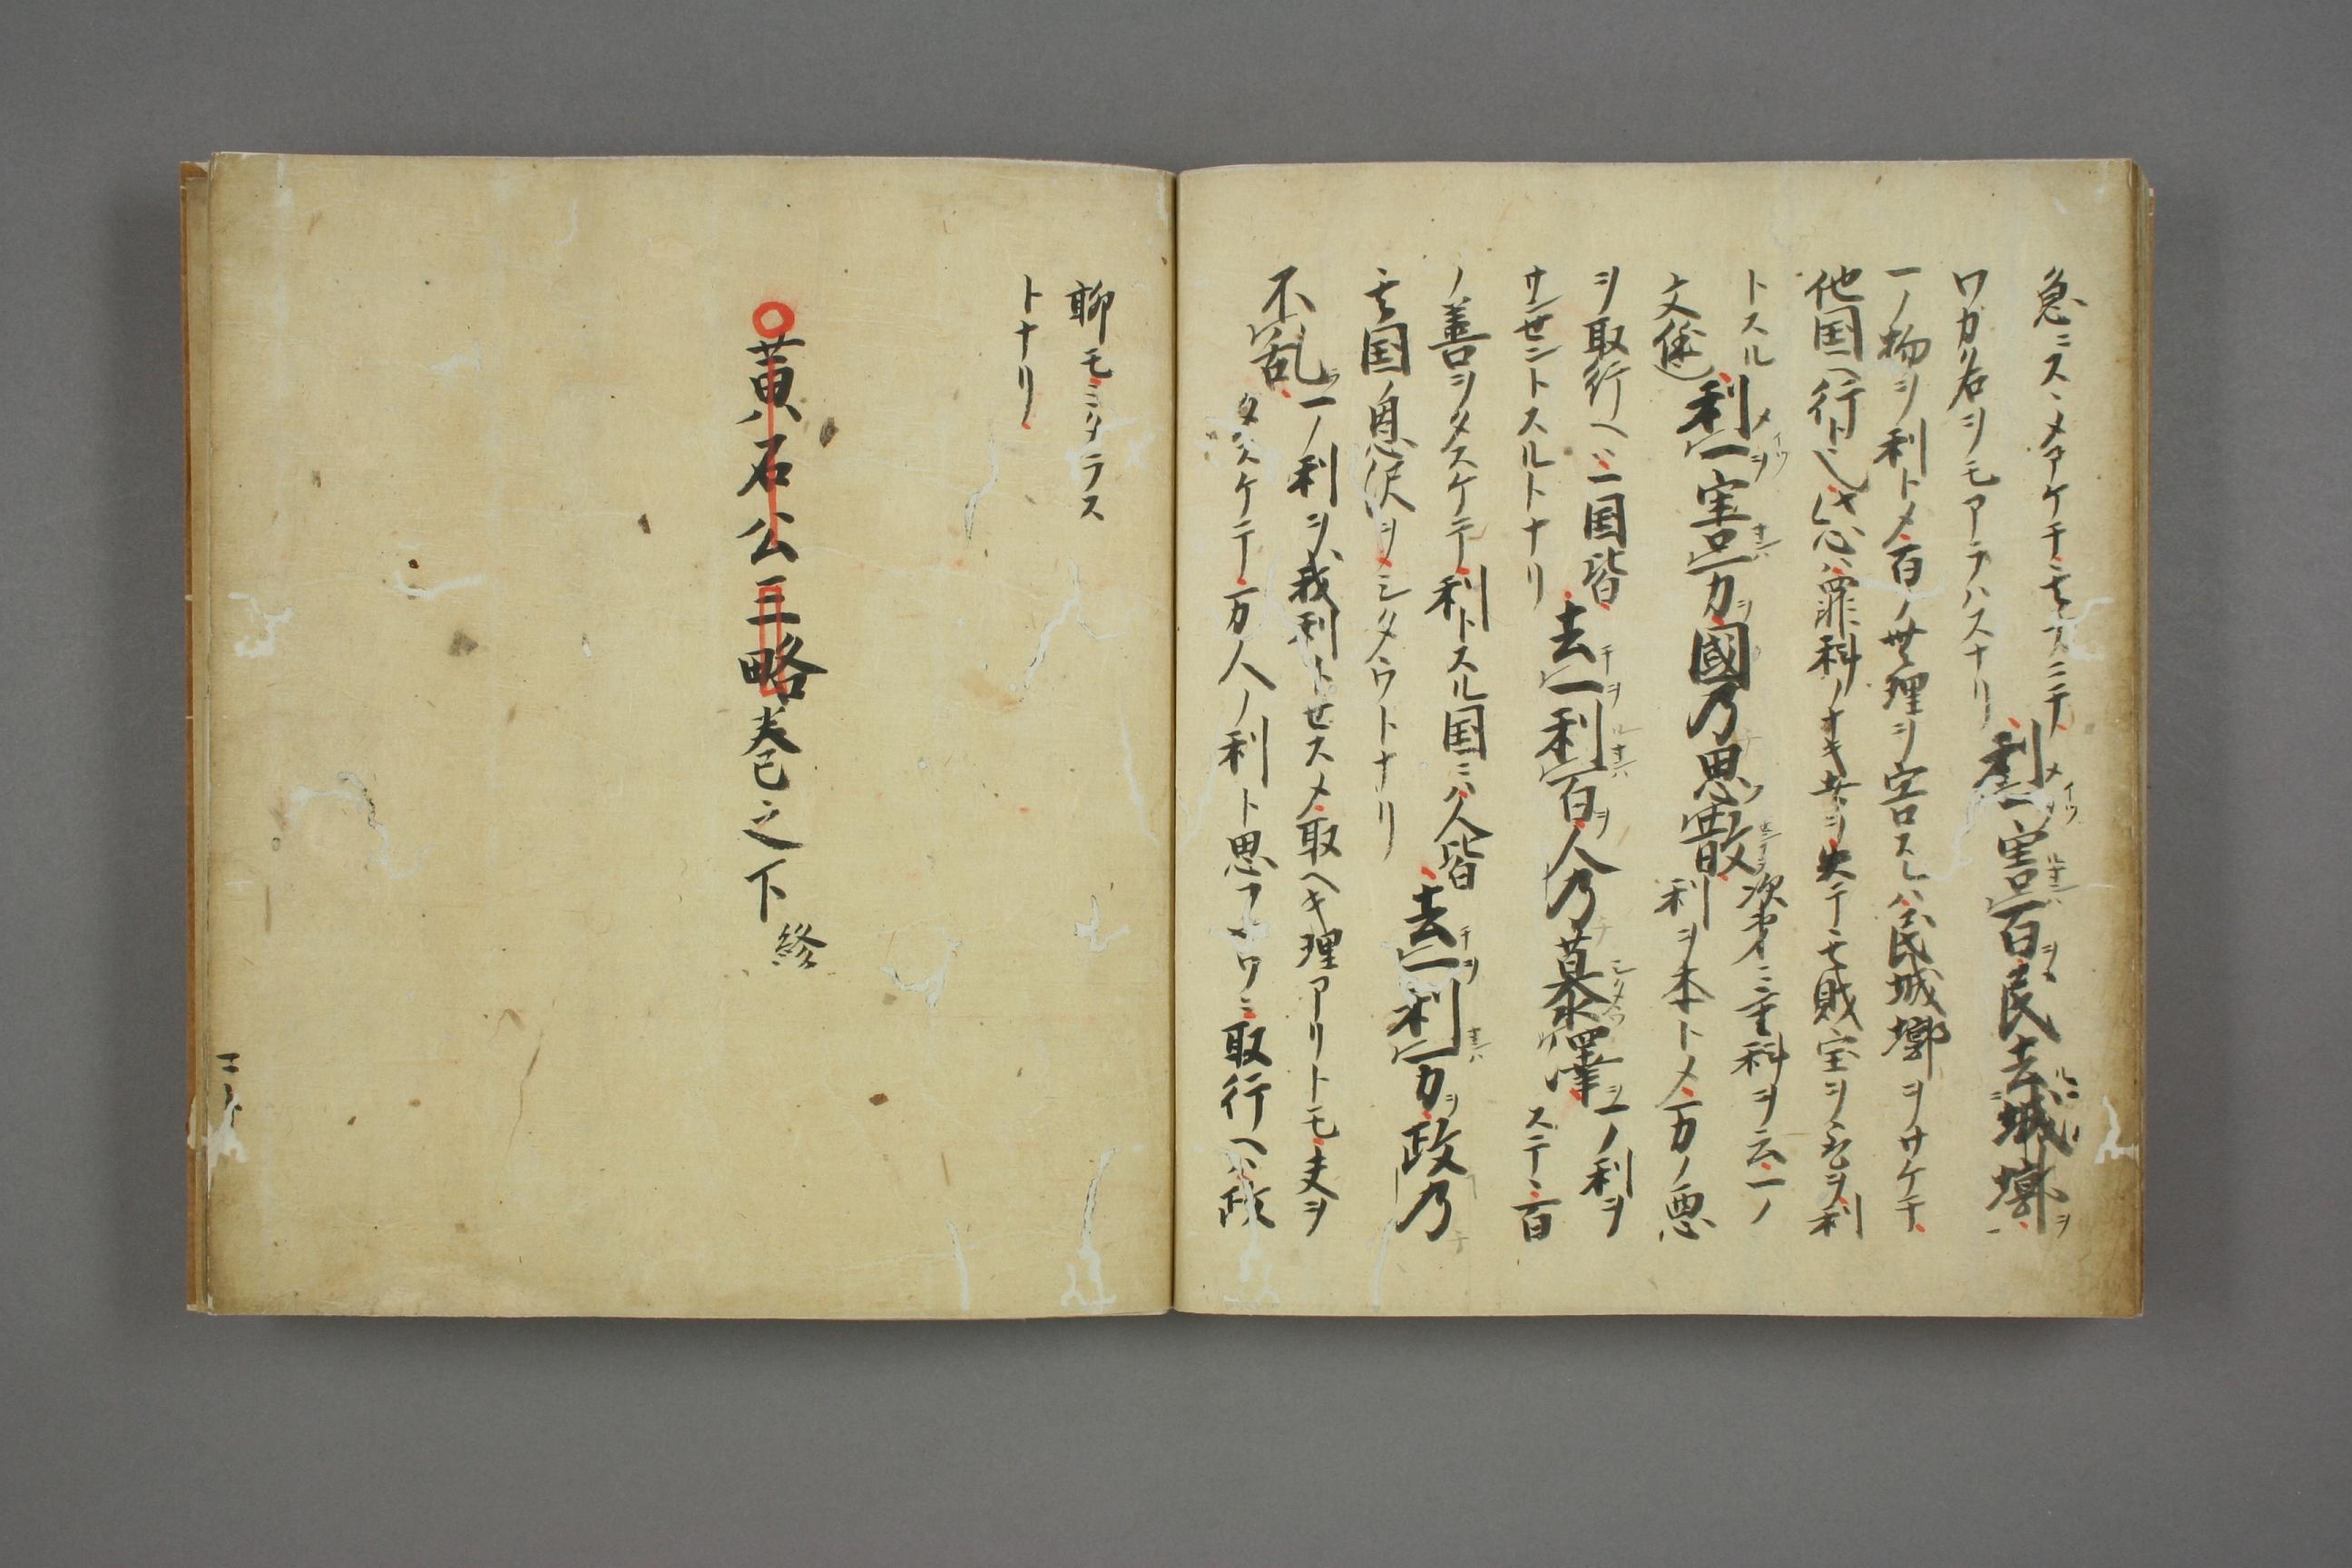 急ニスヽメアケテモスニテ
ワカ名ヲモアラハスナリ 利一害百民去城墎
一ノ物ヲ利トメ百ノ無理ヲ害スレハ民城墎ヲサケテ
他国ヘ行トス
罪科ノナキ者ヲ失テモ財宝ヲ乞ヲ利
トスル 利一害万國乃思散 次第ニ重科ヲ云一ノ
利ヲ本トメ万ノ悪
ヲ取行ヘハ二国皆
サンセントスルトナリ 去一利百人乃慕澤 一ノ利ヲ
ステヽ百
ノ善ヲタスケテ利トスル国ニハ人皆 去一利万政乃
其国ノ恩沢ヲシタウトナリ
不乱 一ノ利ヲ我利トセスメ取ヘキ理アリトモ夫ヲ
タスケテ万人ノ利ト思フヤウニ取行ヘハ政
聊モミタラス
トナリ
黄石公三略巻之下 終